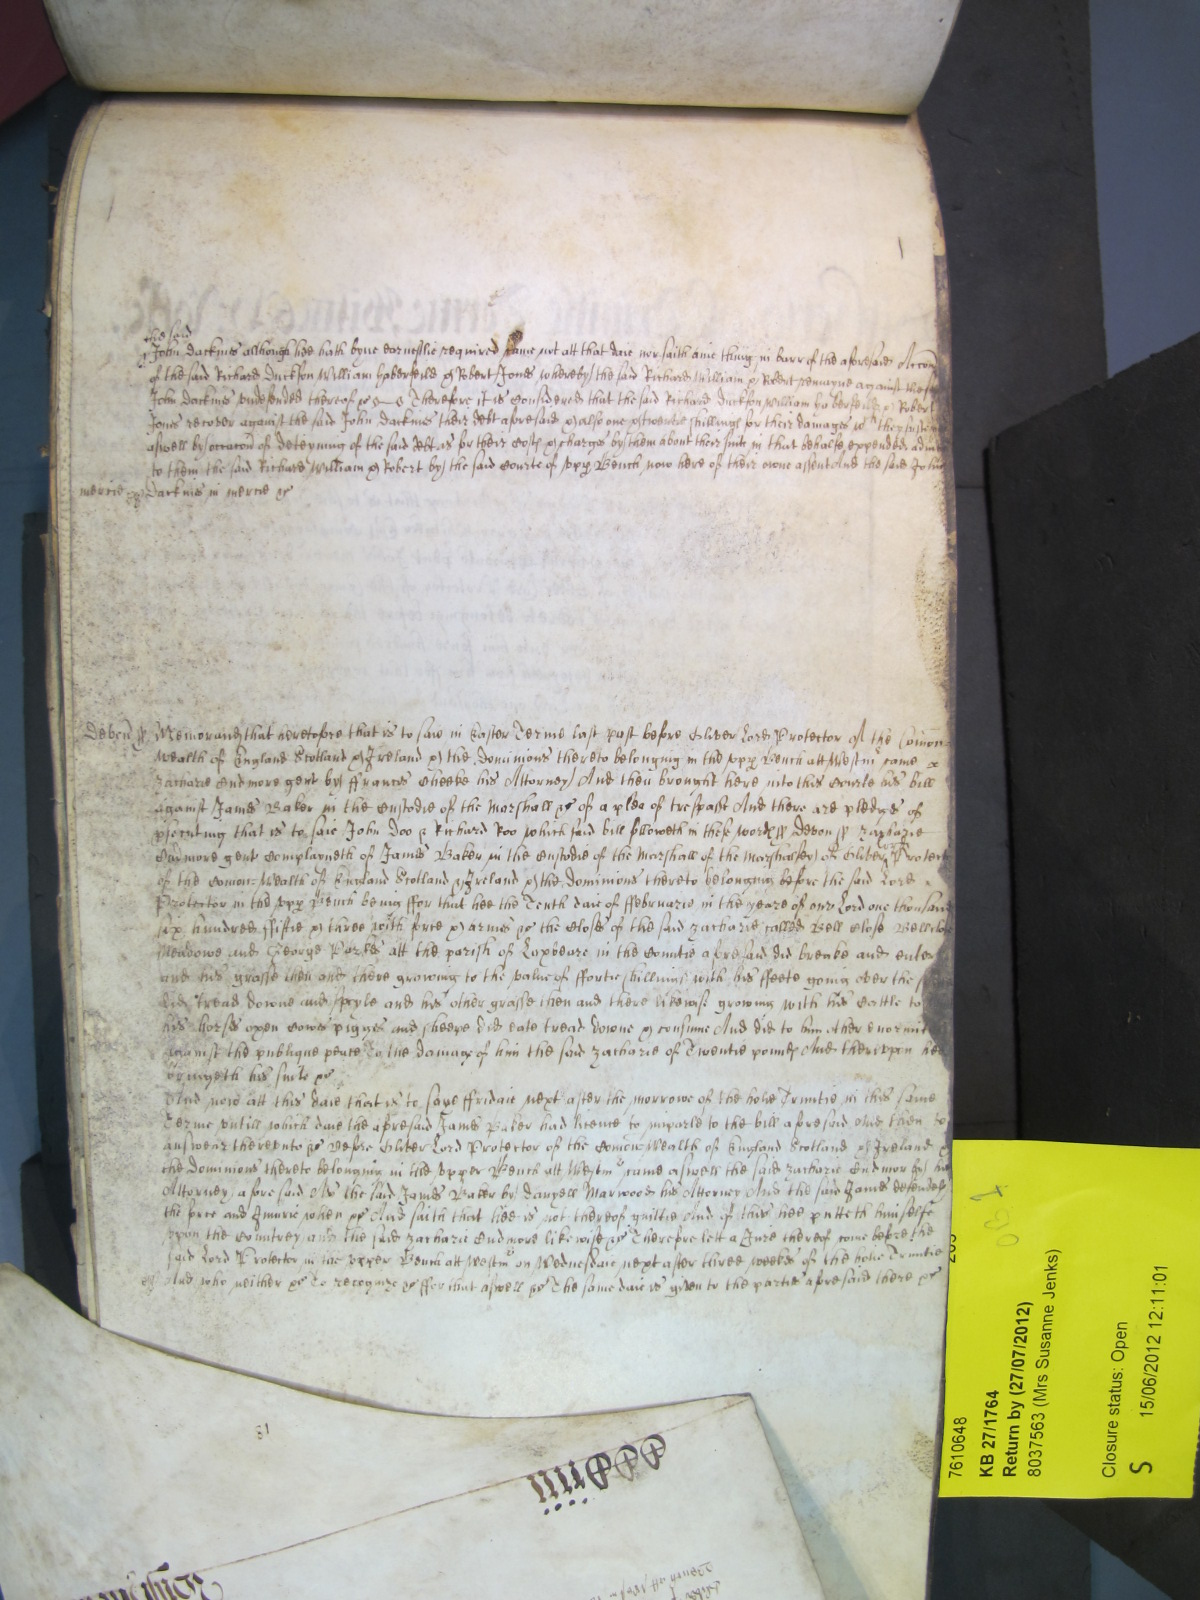 the said
John Darkins although hee hath byne earnestlie required Came not att that daie nor saith anie thing in barr of the aforesaid
of the said Richard Duckson William haberfeild & Robert Jones whereby the said Richard William & Robert remayne against the said
John Darkins undefended thereof &c Therefore it is Considered that the said Richard Duckson William haberfeild & Robert
Jones recover against the said John Darkins their debt aforesaid & alsoe one & twentie shillings for their damages wch they susteyned
aswell by occacon of deteyning of the said debt as for their Costs & charges by them about their suite in that behalfe expended
to them the said Richard William & Robert by the said Courte of upp Bench now here of their owne assent And the said John
mercie Darkins in mercie &c
Devon ss Memorand that heretofore that is to saie in Easter Terme last past before Oliver Lord Protector of the Comon-
wealth of England Scotland & Ireland & the dominions thereto belonging in the upp Bench att Westm came
Zacharie Endmore gent by Francis Cheeke his Attorney And then brought here into this Courte his bill
against James Baker in the Custodie of the Marshall &c of a plea of trespasse And there are pledges of
psecuting that is to saie John Doo & Richard Roo which said bill followeth in these words ss Devon ss Zacharie
Endmore gent Complayneth of James Baker in the Custodie of the Marshall of the Marshalsey of Oliver Lord Protector
of the Comon-Wealth of England Scotland & Ireland & the dominions thereto belonging before the said Lord
Protector in the upp Bench being ffor that hee the Tenth daie of ffebruarie in the yeare of our Lord one thousand
six hundred ffiftie & three with force & armes &c the Closes of the said Zacharie called Bell Close
Meadowe and George Parkes att the parish of Loxbeare in the Countie aforesaid did breake and enter
and his grasse then and there growing to the value of ffortie shillings with his ffeete going over the
did Tread downe and spoyle and his other grasse then and there likewise growing with his Cattle to
his horses oxen Cowes pigges and sheepe did eate tread downe & consume And did to him other enormit
against the publique peace To the damage of him the said Zacharie of Twentie pounds And thereupon hee
bringeth his suite &c
And now att this daie that is to saye ffridaie next after the morrowe of the holie Trinitie in this same
Terme untill which daie the aforesaid James Baker had licence to imparle to the bill aforesaid And then to
answear thereunto &c before Oliver Lord Protector of the Comon-Wealth of England Scotland & Ireland &
the dominions thereto belonging in the upper Bench att Westm came aswell the said Zacharie Endmore by his
Attorney aforesaid As the said James Baker by Danyell Marwood his Attorney And the said James defendeth
the force and Iniurie when &c And saith that hee is not thereof guiltie And of this hee putteth himselfe
upon the Countrey and the said Zacharie Endmore likewise &c Therefore lett a Iurie thereof come before the
said Lord Protector in the upper Bench att Westm on Wednesdaie next after three weekes of the holie Trinitie
And who neither &c To recognize &c ffor that aswell &c The same daie is given to the parties aforesaid there &c
7610648
KB 27/1764
Return by (27/07/2012)
8037563 (Mrs Susanne Jenks)
Closure status: Open
S
15/06/2012 12:11:01
81